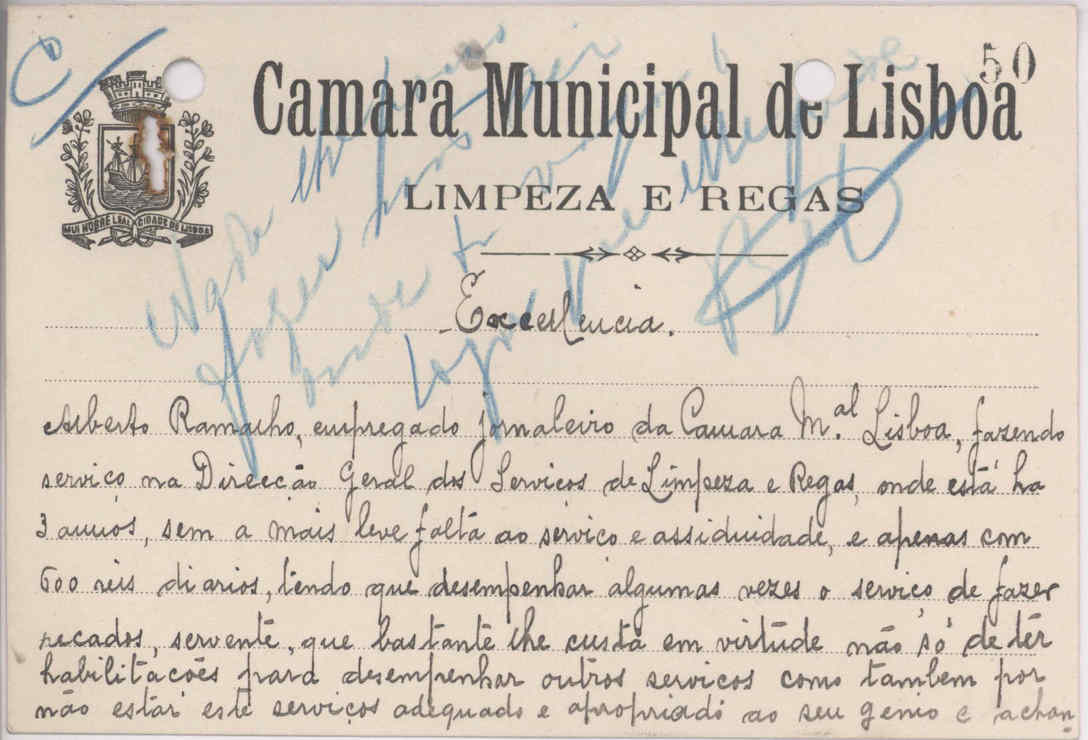 50
Camara Municipal de Lisboa
LIMPEZA E REGAS
MUI NOBRE LEAL CIDADE DE LISBOA
Nada lhe posso
fazer
onde
logo
Excellencia.
Alberto Ramalho, empregado jornaleiro da Camara M.al Lisboa, fazendo
serviço na Direcção Geral dos Serviços de Limpeza e Regas, onde está ha
3 annos, sem a mais leve falta ao serviço e assiduidade, e apenas com
600 reis diarios, tendo que desempenhar algumas vezes o serviço de fazer
recados, servente, que bastante lhe custa em virtude não só de ter
habilitações para desempenhar outros serviços como tambem por
não estar este serviços adequado e apropriado ao seu genio e achan